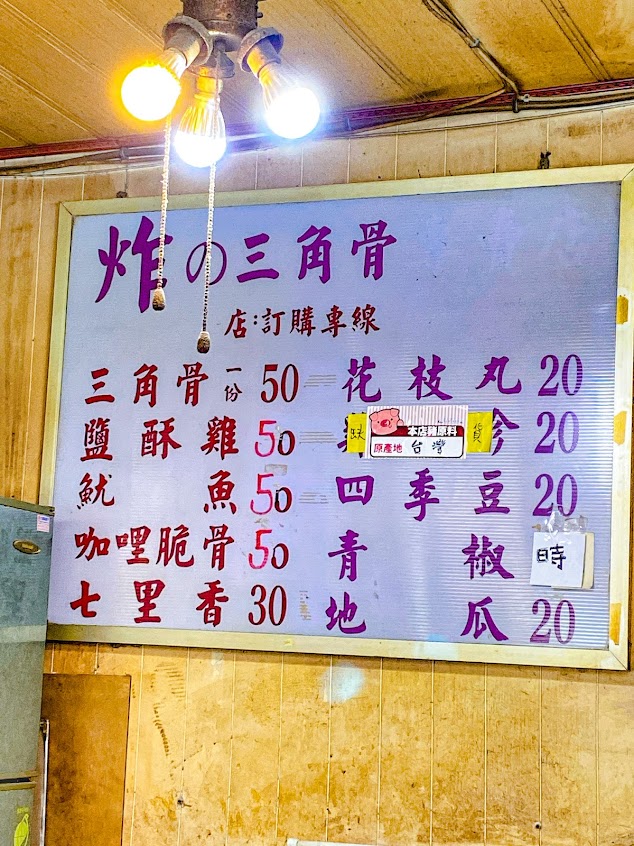 炸の三角骨
店:訂購專線
三角骨一份50
花枝丸20
鹽酥雞50
缺 貨
本店豬原料
原產地 台灣
20
魷魚50
四季豆20
咖哩脆骨50
青椒 時
七里香30
地瓜20